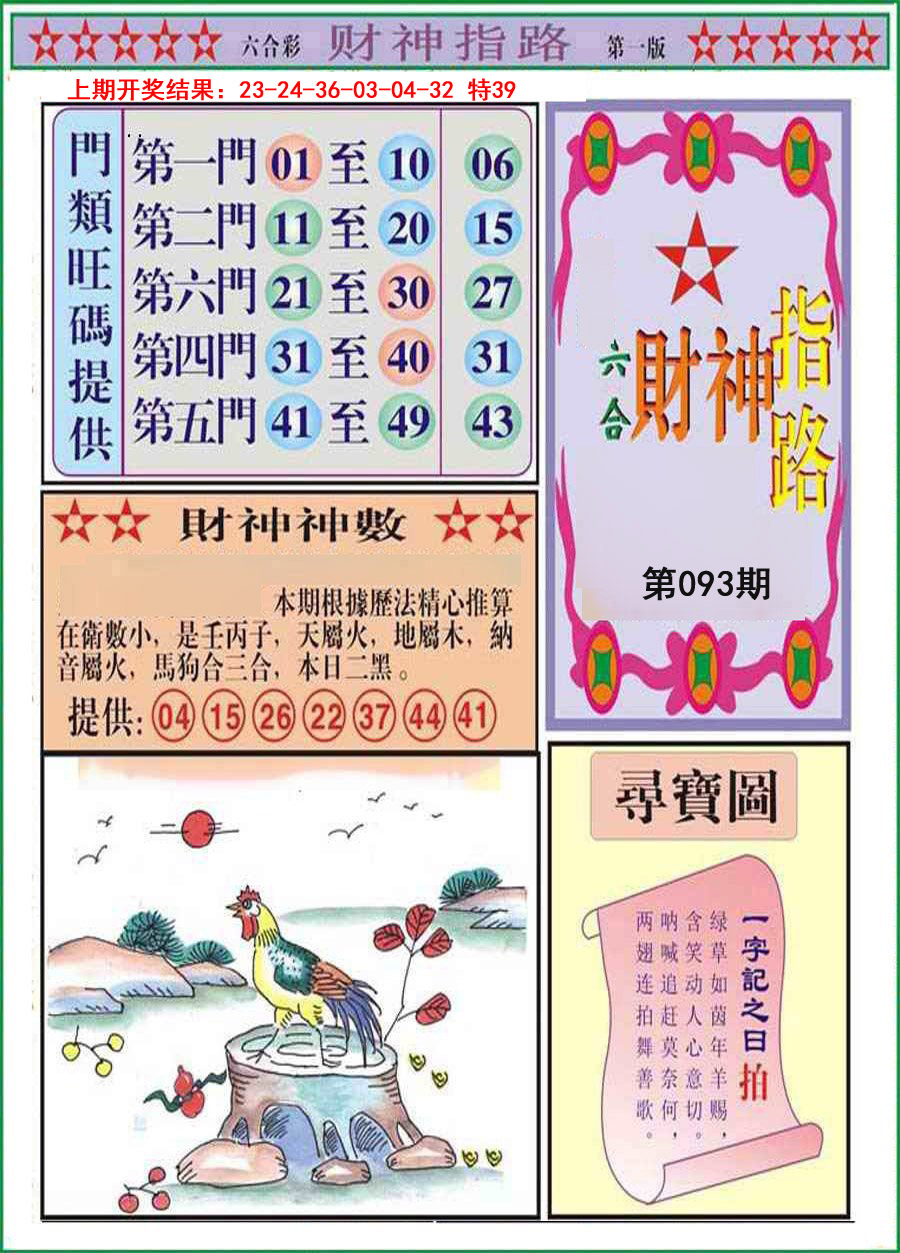 六合彩 财神指路 第一版
上期开奖结果：23-24-36-03-04-32 特39
門類旺碼提供
第一門 01 至 10 06
第二門 11 至 20 15
第六門 21 至 30 27
第四門 31 至 40 31
第五門 41 至 49 43
六合
財神
指路
第093期
財神神數
本期根據歷法精心推算
在衛數小，是壬丙子，天屬火，地屬木，納
音屬火，馬狗合三合，本日二黑。
提供: 04 15 26 22 37 44 41
尋寶圖
一字記之曰拍
绿草如茵年羊赐，
含笑动人心意切。
呐喊追赶莫奈何，
两翅连拍舞善歌。